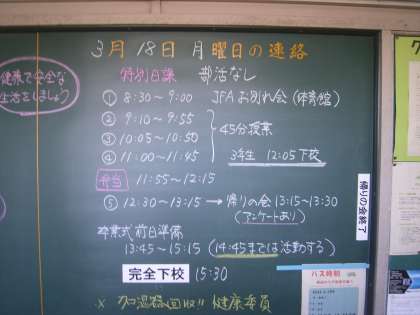 3月18日 月曜日の連絡
健康で安全な
生活をしましょう
特別日課 部活なし
① 8:30~9:00 JFAお別れ会(体育館)
② 9:10~9:55
③ 10:05~10:50
④ 11:00~11:45
45分授業
3年生 12:05下校
弁当 11:55~12:15
⑤ 12:30~13:15 → 帰りの会 13:15~13:30
(アンケートあり)
卒業式前日準備
13:45~15:15 (14:45までは活動する)
完全下校 15:30
健康委員
帰りの会終了
バス時刻